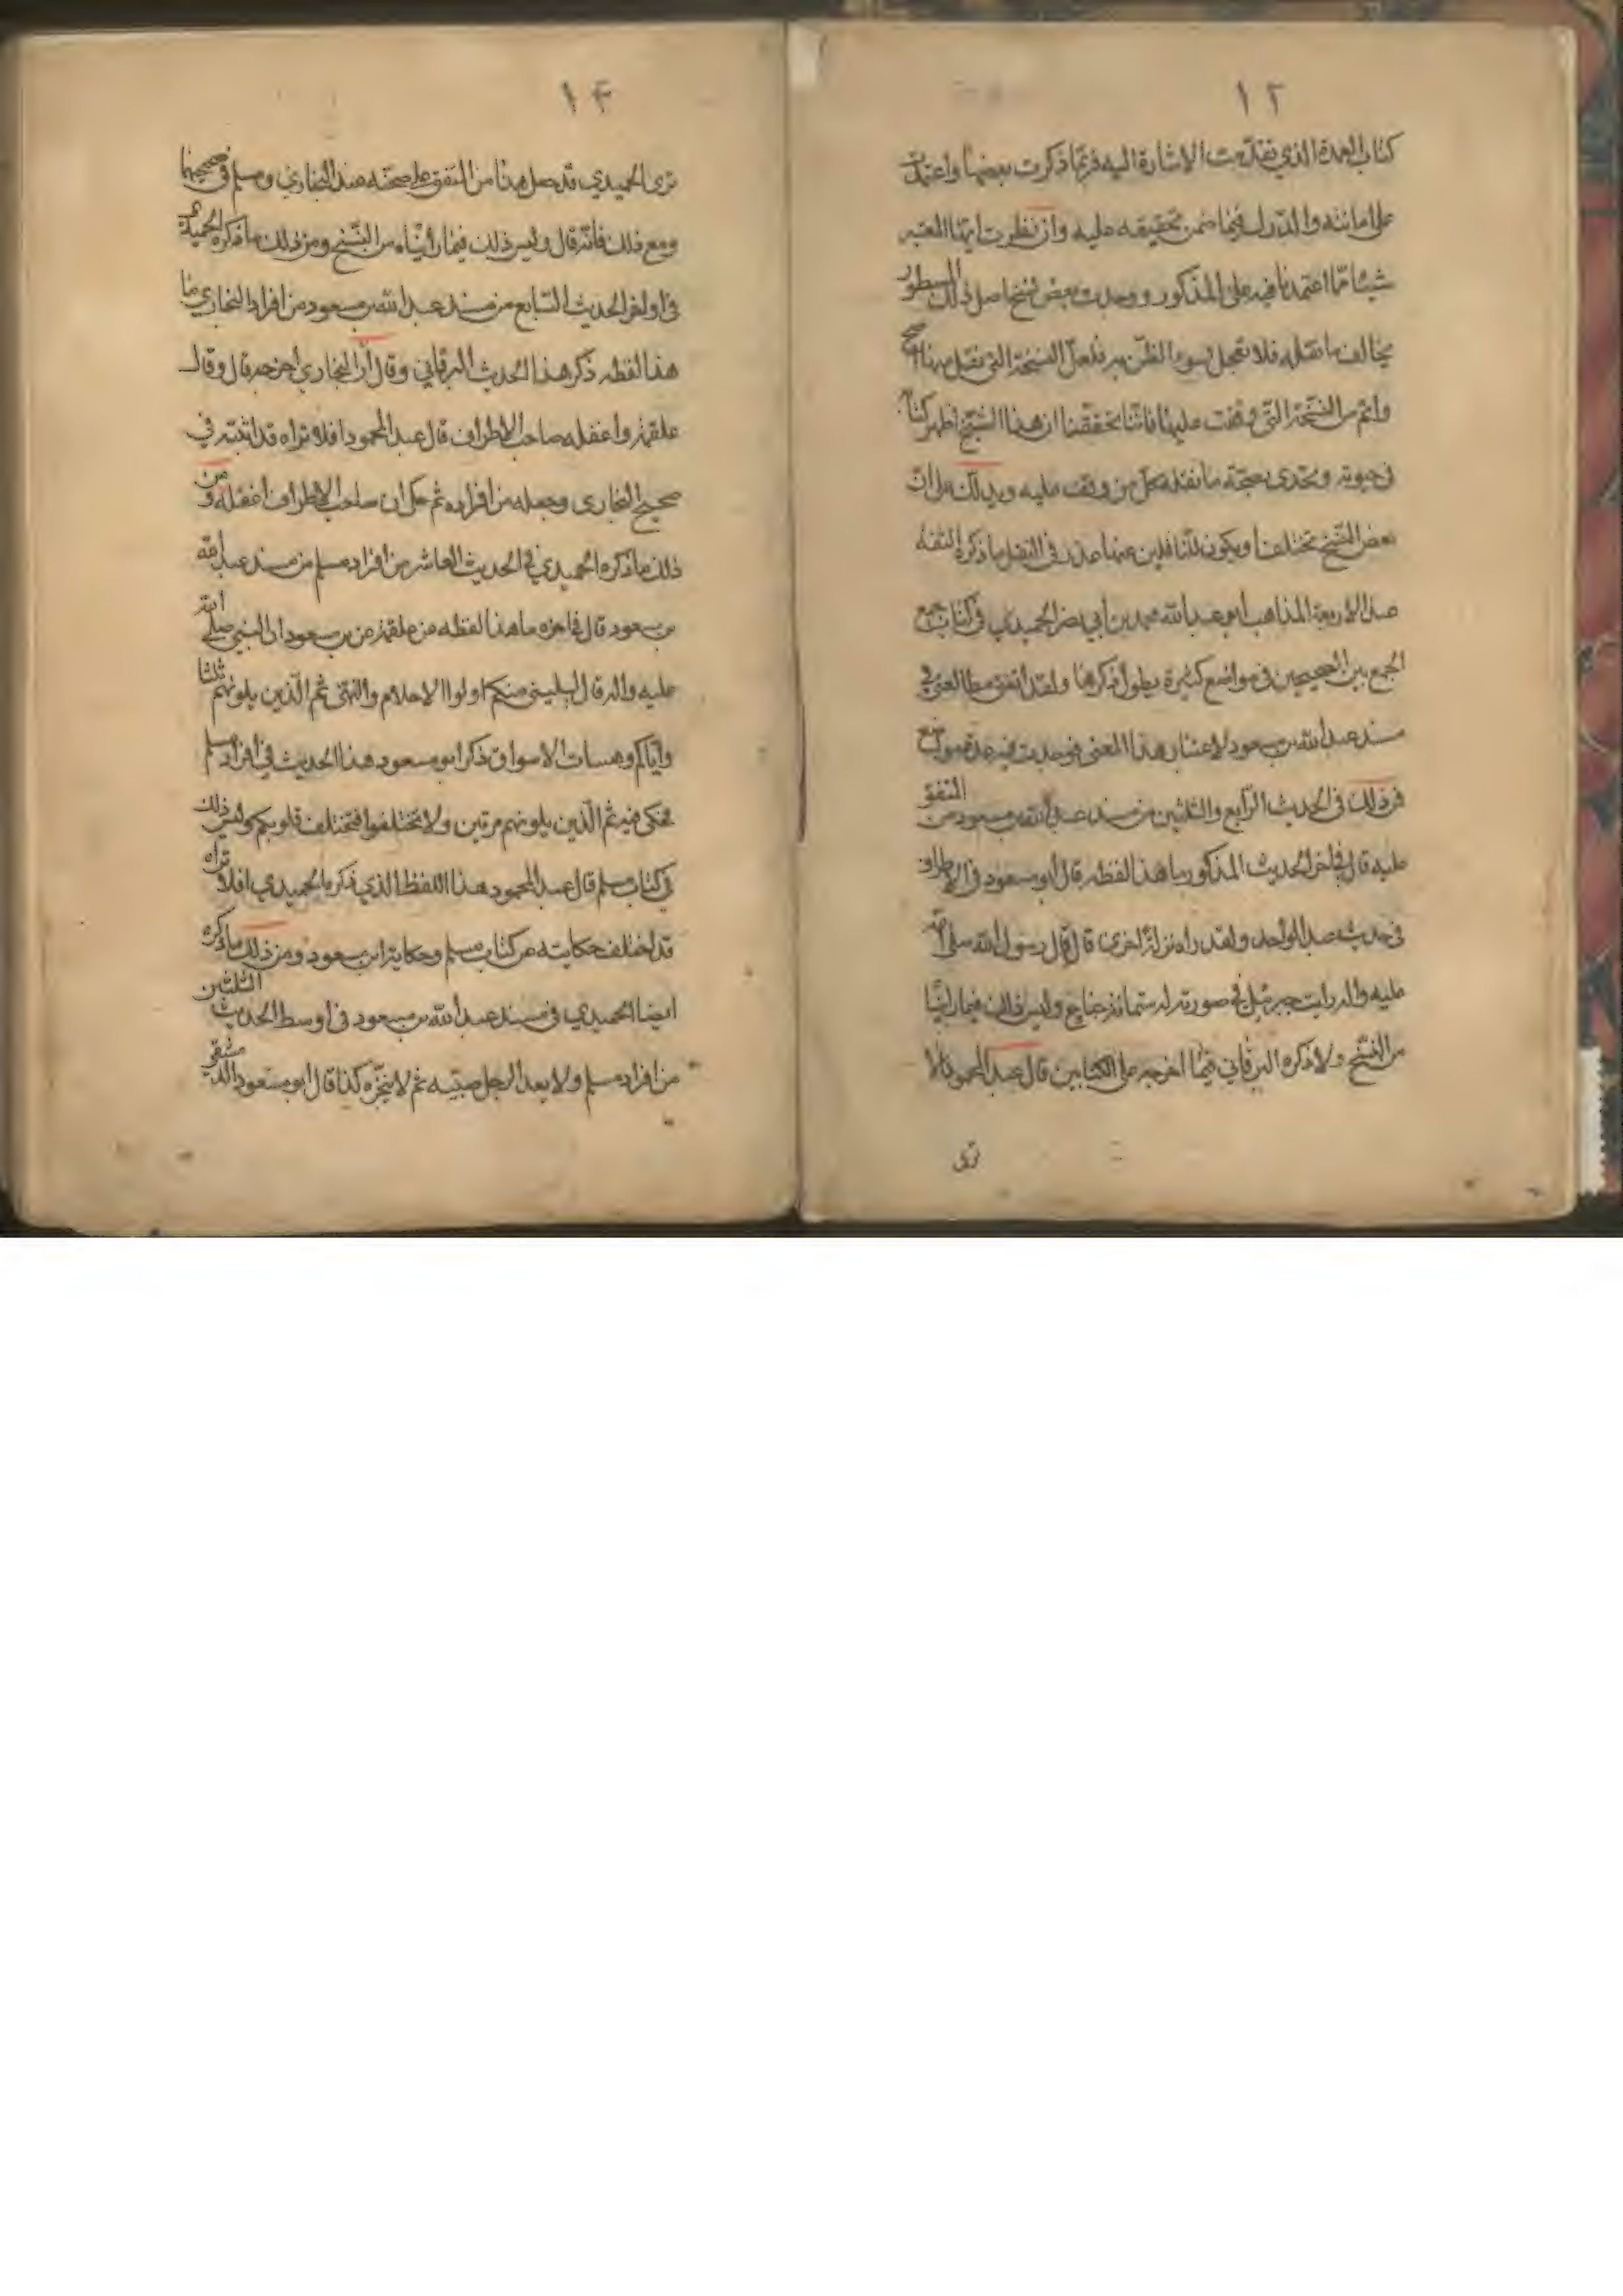 ١٢
كتاب العمدة الذي تقدمت الاشارة اليه فربما ذكرت بعضها واعتمدت
على امانته والدرك فيما ضمن تحقيقه عليه وان نظرت ايها المعتبر
شيئا مما اعتمدنا فيه على المذكور ووجدت بعض نسخ اصل ذلك المسطور
يخالف ما نقله فلا تعجل بسوء الظن به فلعل النسخة التي نقل منها اصح
واتم من النسخة التي وقفت عليها فاننا تحققنا ان هذا الشيخ اظهر كتابه
في حيوته وتحدى بصحة ما نقله كل من وقف عليه ويدلك على ان
بعض النسخ تختلف ويكون للناقلين عنها عذر في النقل ما ذكره الثقة
عند الاربعة المذاهب ابو عبد الله محمد بن أبي نصر الحميدي في كتاب
الجمع بين الصحيحين في مواضع كثيرة يطول ذكرها ولقد اتفق مطالعتي في
مسند عبد الله بن مسعود لاعتبار هذا المعنى فوجدت فيه عدة مواضع
فمن ذلك في الحديث الرابع والثلثين من مسند عبد الله بن مسعود من المتفق
عليه قال في اخر الحديث المذكور ما هذا لفظه قال أبو مسعود في الاطراف
في حديث عبد الواحد ولقد راه نزلة اخرى قال قال رسول الله صلى الله
عليه واله رايت جبرئيل في صورته له ستمائة جناح وليس ذلك فيما رأينا
من النسخ ولا ذكره البرقاني فيما اخرجه على الكتابين قال عبد المحمود افلا
ترى
١٤
ترى الحميدي قد جعل هذا من المتفق على صحته عند البخاري ومسلم في صحيحيهما
ومع ذلك فانه قال وليس ذلك فيما رأيناه من النسخ ومن ذلك ما ذكره الحميدي
في اواخر الحديث السابع من مسند عبد الله بن مسعود من افراد البخاري ما
هذا لفظه ذكر هذا الحديث البرقاني وقال أن البخاري أخرجه قال وقال
علقمة واغفله صاحب الاطراف قال عبد المحمود افلا تراه قد اثبته في
صحيح البخاري وجعله من افراده ثم حكى ان صاحب الاطراف اغفله ومن
ذلك ما ذكره الحميدي في الحديث العاشر من افراد مسلم من مسند عبد الله
بن مسعود قال في اخره ما هذا لفظه عن علقمة عن بن مسعود ان النبي صلى الله
عليه واله قال ليليني منكم اولوا الاحلام والنهى ثم الذين يلونهم ثلثا
واياكم وهيسات الاسواق ذكر ابو مسعود هذا الحديث في افراد مسلم
فحكى فيه ثم الذين يلونهم مرتين ولا تختلفوا فتختلف قلوبكم وليس ذلك
في كتاب مسلم قال عبد المحمود هذا اللفظ الذي ذكره الحميدي افلا تراه
قد اختلف حكايته عن كتاب مسلم وحكاية ابن مسعود ومن ذلك ما ذكره
ايضا الحميدي في مسند عبد الله بن مسعود في اوسط الحديث الثلثين
من افراد مسلم ولا يعد الرجل صبيه ثم لا ينجزه كذا قال ابو مسعود الدمشقي